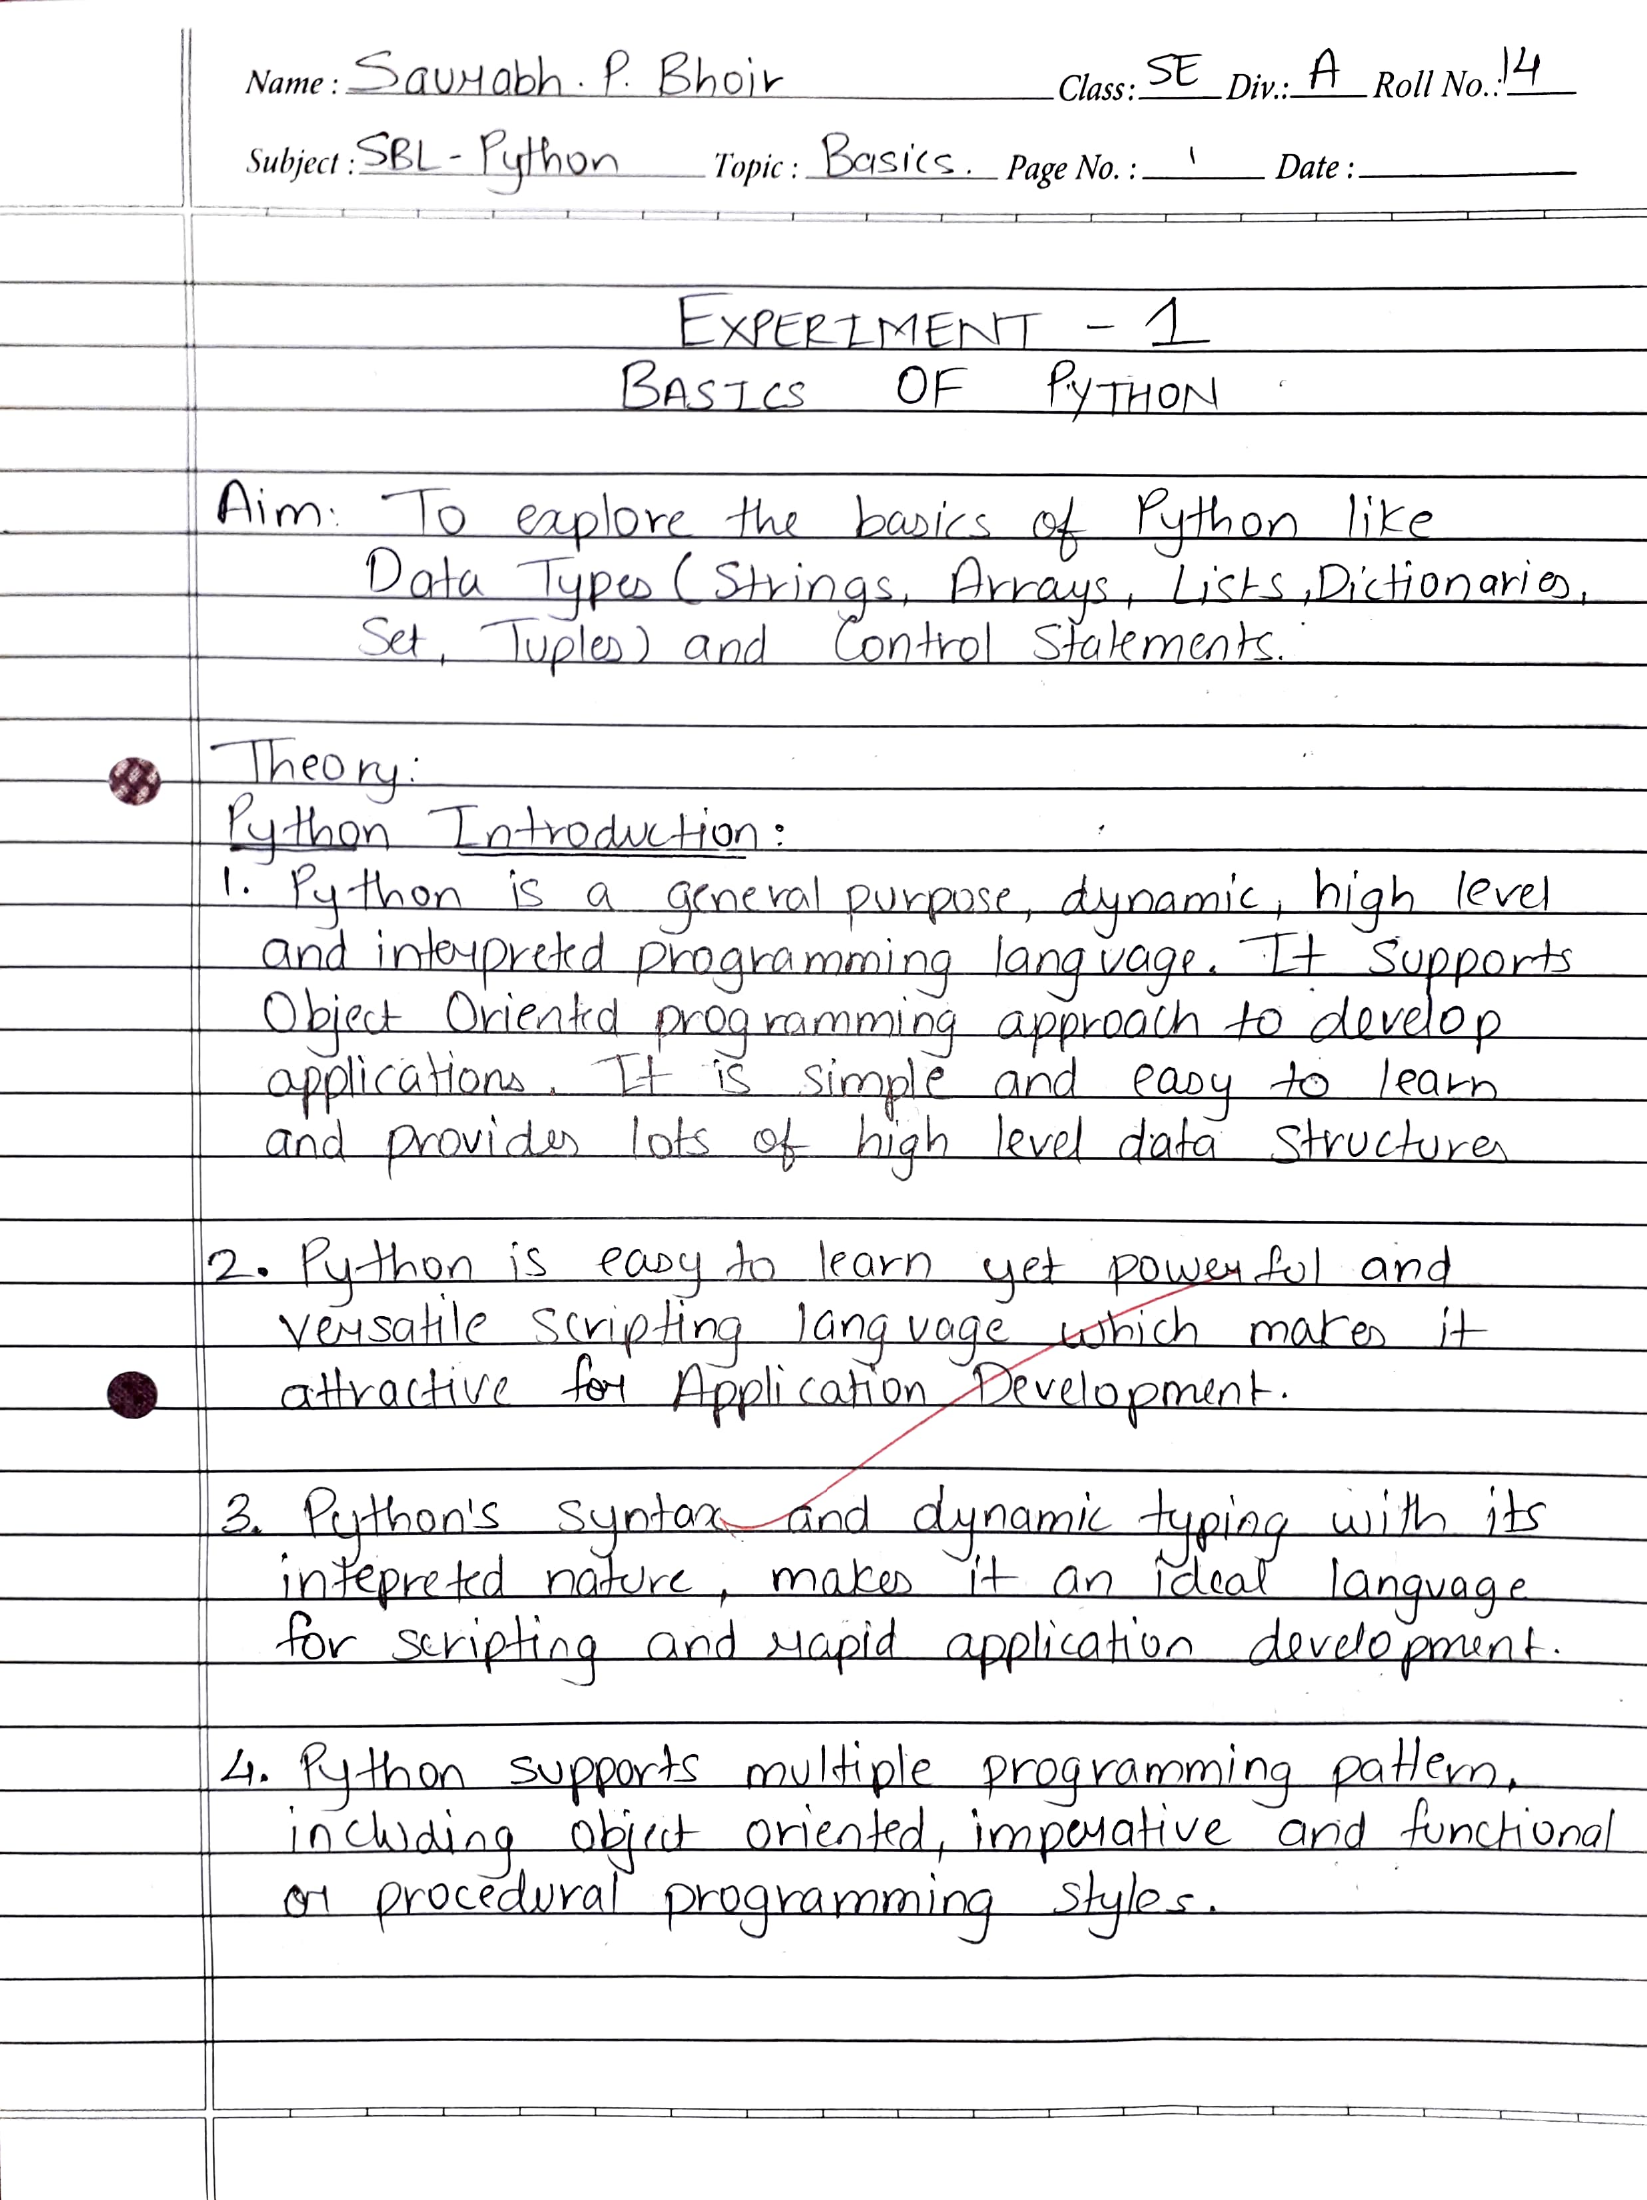 Name : Saurabh. P. Bhoir Class: SE Div.: A Roll No.: 14
Subject : SBL - Python Topic : Basics. Page No. : 1 Date :
EXPERIMENT - 1
BASICS OF PYTHON
Aim: To explore the basics of Python like
Data Types (Strings, Arrays, Lists, Dictionaries,
Set, Tuples) and Control Statements.
Theory:
Python Introduction:
1. Python is a general purpose, dynamic, high level
and interpreted programming language. It supports
Object Oriented programming approach to develop
applications. It is simple and easy to learn
and provides lots of high level data structures
2. Python is easy to learn yet powerful and
versatile scripting language which makes it
attractive for Application Development.
3. Python's syntax and dynamic typing with its
intepreted nature, makes it an ideal language
for scripting and rapid application development.
4. Python supports multiple programming pattern,
including object oriented, imperative and functional
or procedural programming styles.